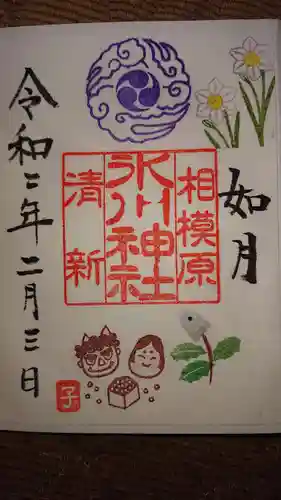 如月
相模原
氷川神社
清新
令和二年二月三日
子